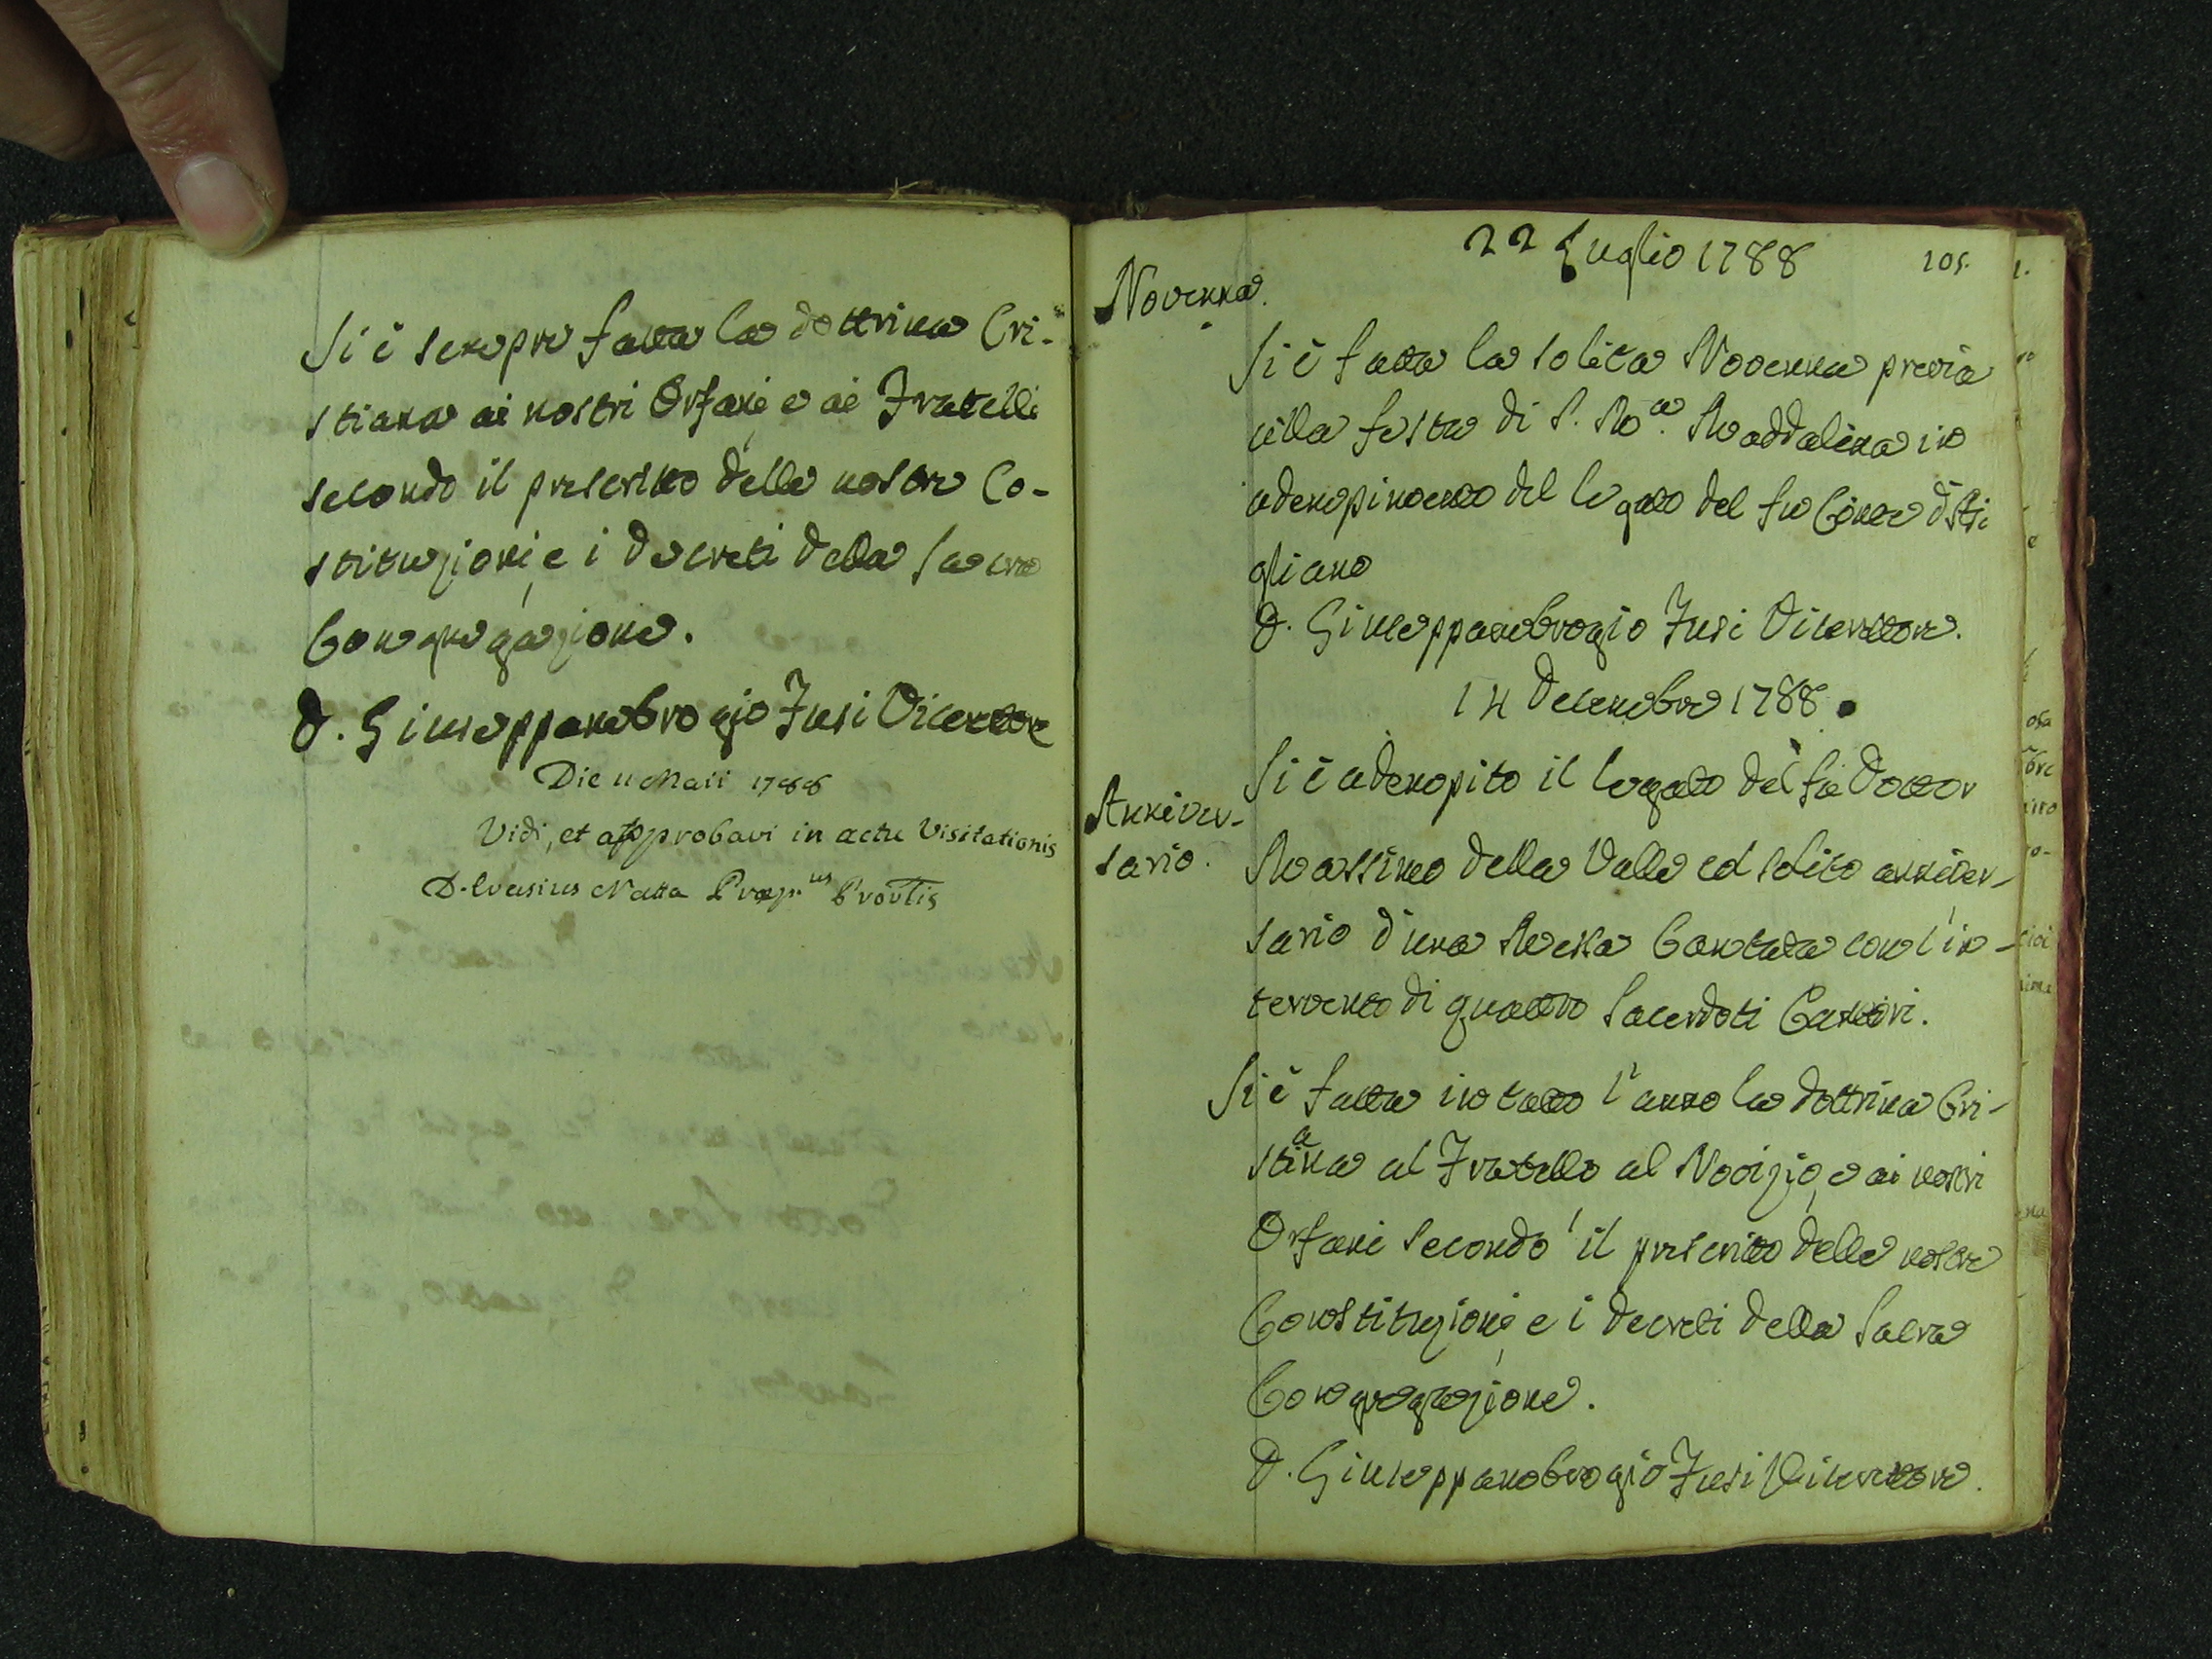 Si è sempre fatta la dottrina Cri-
stiana ai nostri Orfani e ai Fratelli
secondo il prescritto delle nostre Co-
stituzioni, e i decreti della Sacra
Congregazione.
D. Giuseppambrogio Fusi Vicerettore
Die 11 Maii 1788
Vidi, et approbavi in actu Visitationis
D. Evasius Natta Præp.us Prov̄lis
22 Luglio 1788
105.
Novenna.
Si è fatta la solita Novenna previa
alla festa di S. Ma. Maddalena in
adempimento del legato del fu Conte di Sti
gliano
D. Giuseppambrogio Fusi Vicerettore.
14 Decembre 1788.
Anniver-
sario.
Si è adempito il legato del fu Dottor
Massimo della Valle col solito anniver-
sario d'una Messa Cantata con l'in-
tervento di quattro Sacerdoti Cantori.
Si è fatta in tutto l'anno la dottrina Cri-
stiana al Fratello al Novizio, e ai nostri
Orfani secondo il prescritto delle nostre
Constituzioni, e i decreti della Sacra
Congregazione.
D. Giuseppambrogio Fusi Vicerettore.